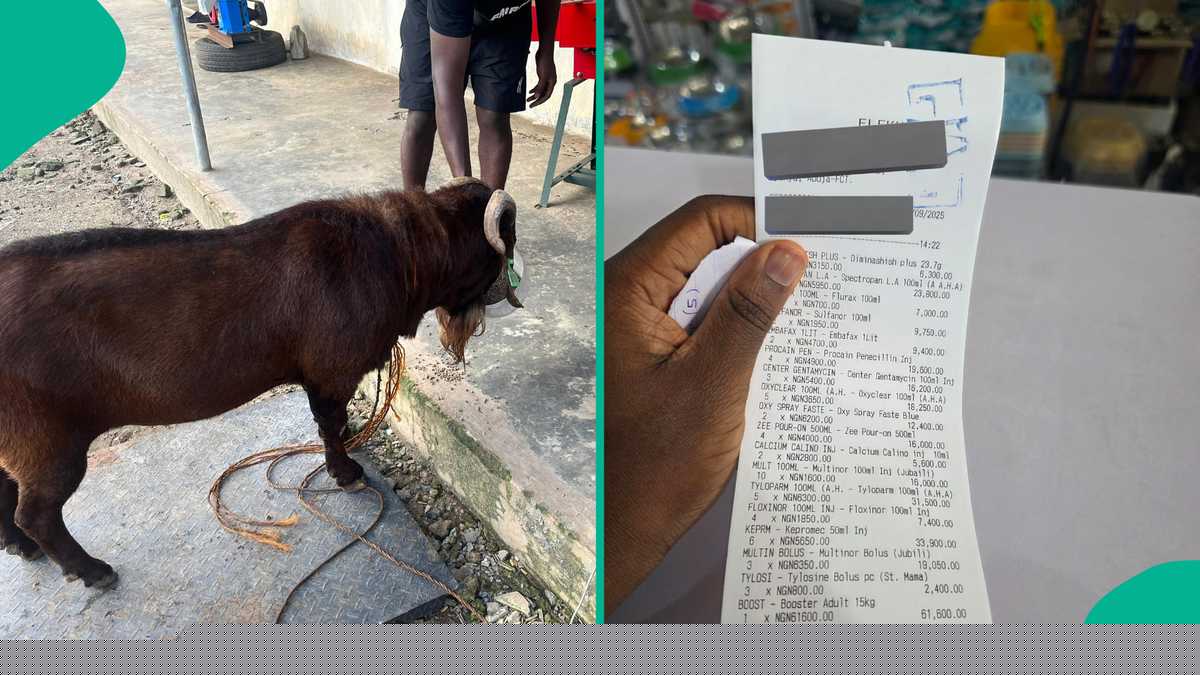 Abuja-FCT.
/09/2025
14:22
SH PLUS - Diminashish plus 23.7g
NGN3150.00 6,300.00
AN L.A - Spectropan L.A 100ml (A A.H.A)
NGN5950.00 23,800.00
100ML - Flurax 100ml
x NGN700.00 7,000.00
FANOR - Sulfanor 100ml
x NGN1950.00 9,750.00
EMBAFAX 1LIT - Embafax 1Lit
2 x NGN4700.00 9,400.00
PROCAIN PEN - Procain Penecillin Inj
4 x NGN4900.00 19,600.00
CENTER GENTAMYCIN - Center Gentamycin 100ml Inj
3 x NGN5400.00 16,200.00
OXYCLEAR 100ML (A.H. - Oxyclear 100ml (A.H.A)
5 x NGN3650.00 18,250.00
OXY SPRAY FASTE - Oxy Spray Faste Blue
2 x NGN6200.00 12,400.00
ZEE POUR-ON 500ML - Zee Pour-on 500ml
4 x NGN4000.00 16,000.00
CALCIUM CALINO INJ - Calcium Calino inj 10ml
2 x NGN2800.00 5,600.00
MULT 100ML - Multinor 100ml Inj (Jubaili)
10 x NGN1600.00 16,000.00
TYLOPARM 100ML (A.H. - Tyloparm 100ml (A.H.A)
5 x NGN6300.00 31,500.00
FLOXINOR 100ML INJ - Floxinor 100ml Inj
4 x NGN1850.00 7,400.00
KEPRM - Kepromec 50ml Inj
6 x NGN5650.00 33,900.00
MULTIN BOLUS - Multinor Bolus (Jubili)
3 x NGN6350.00 19,050.00
TYLOSI - Tylosine Bolus pc (St. Mama)
3 x NGN800.00 2,400.00
BOOST - Booster Adult 15kg
1 x NGN61600.00 61,600.00
(5)